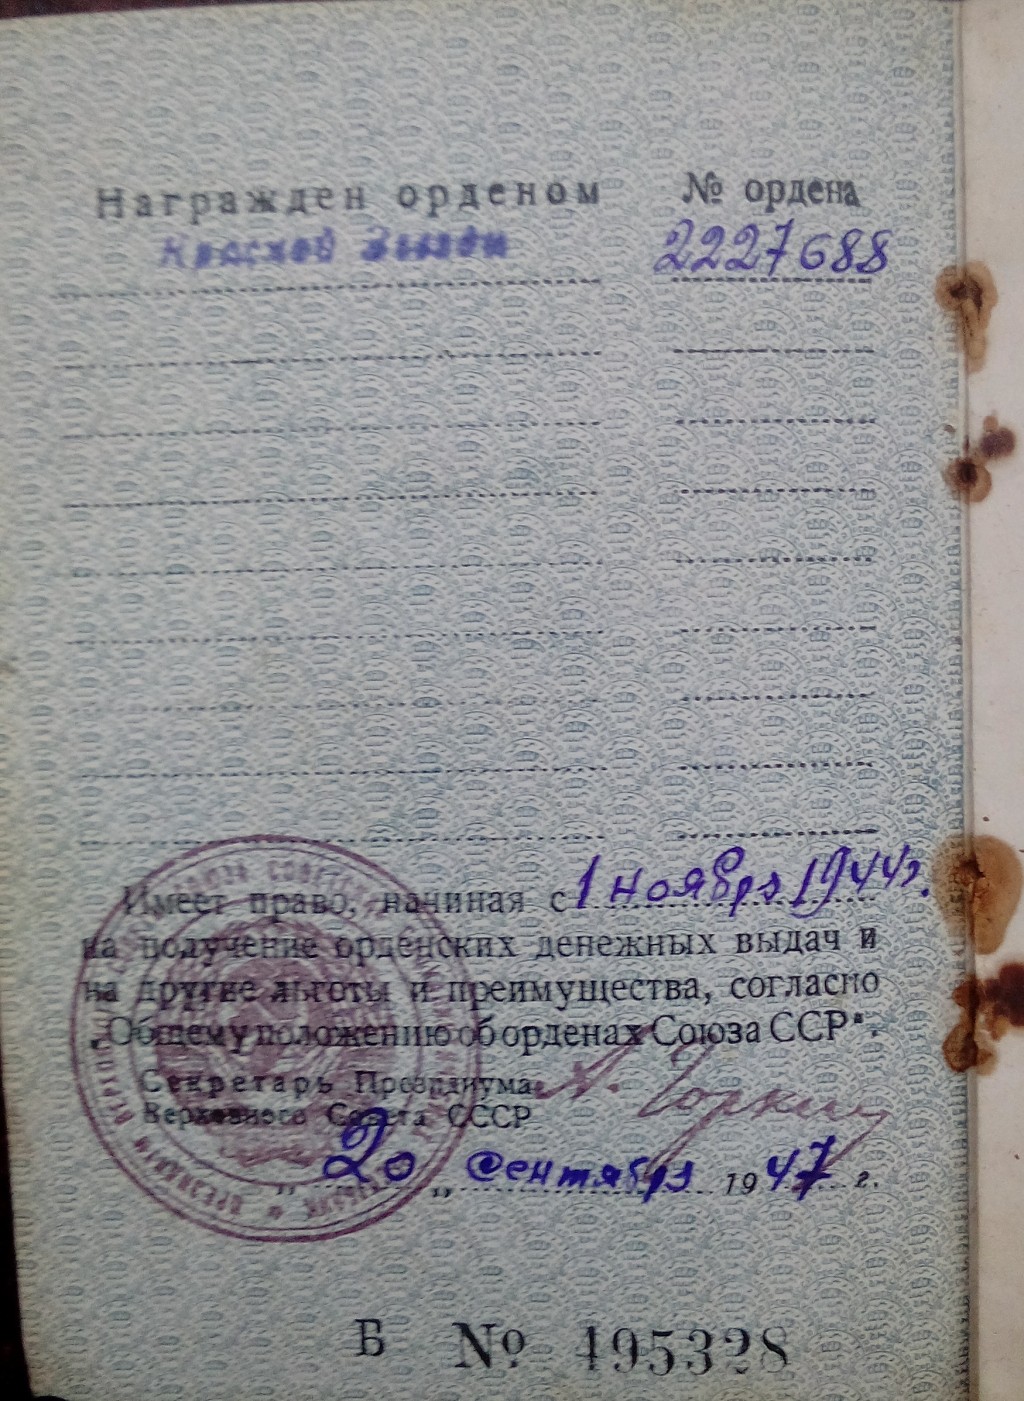 Награжден орденом № ордена
Красной Звезды 2227688
Имеет право, начиная с 1 ноября 1944г.
на получение орденских денежных выдач и
на другие льготы и преимущества, согласно
„Общему положению об орденах Союза ССР“.
Секретарь Президиума А. Горкин
Верховного Совета СССР
„20„ Сентября 1947 г.
Б № 495328